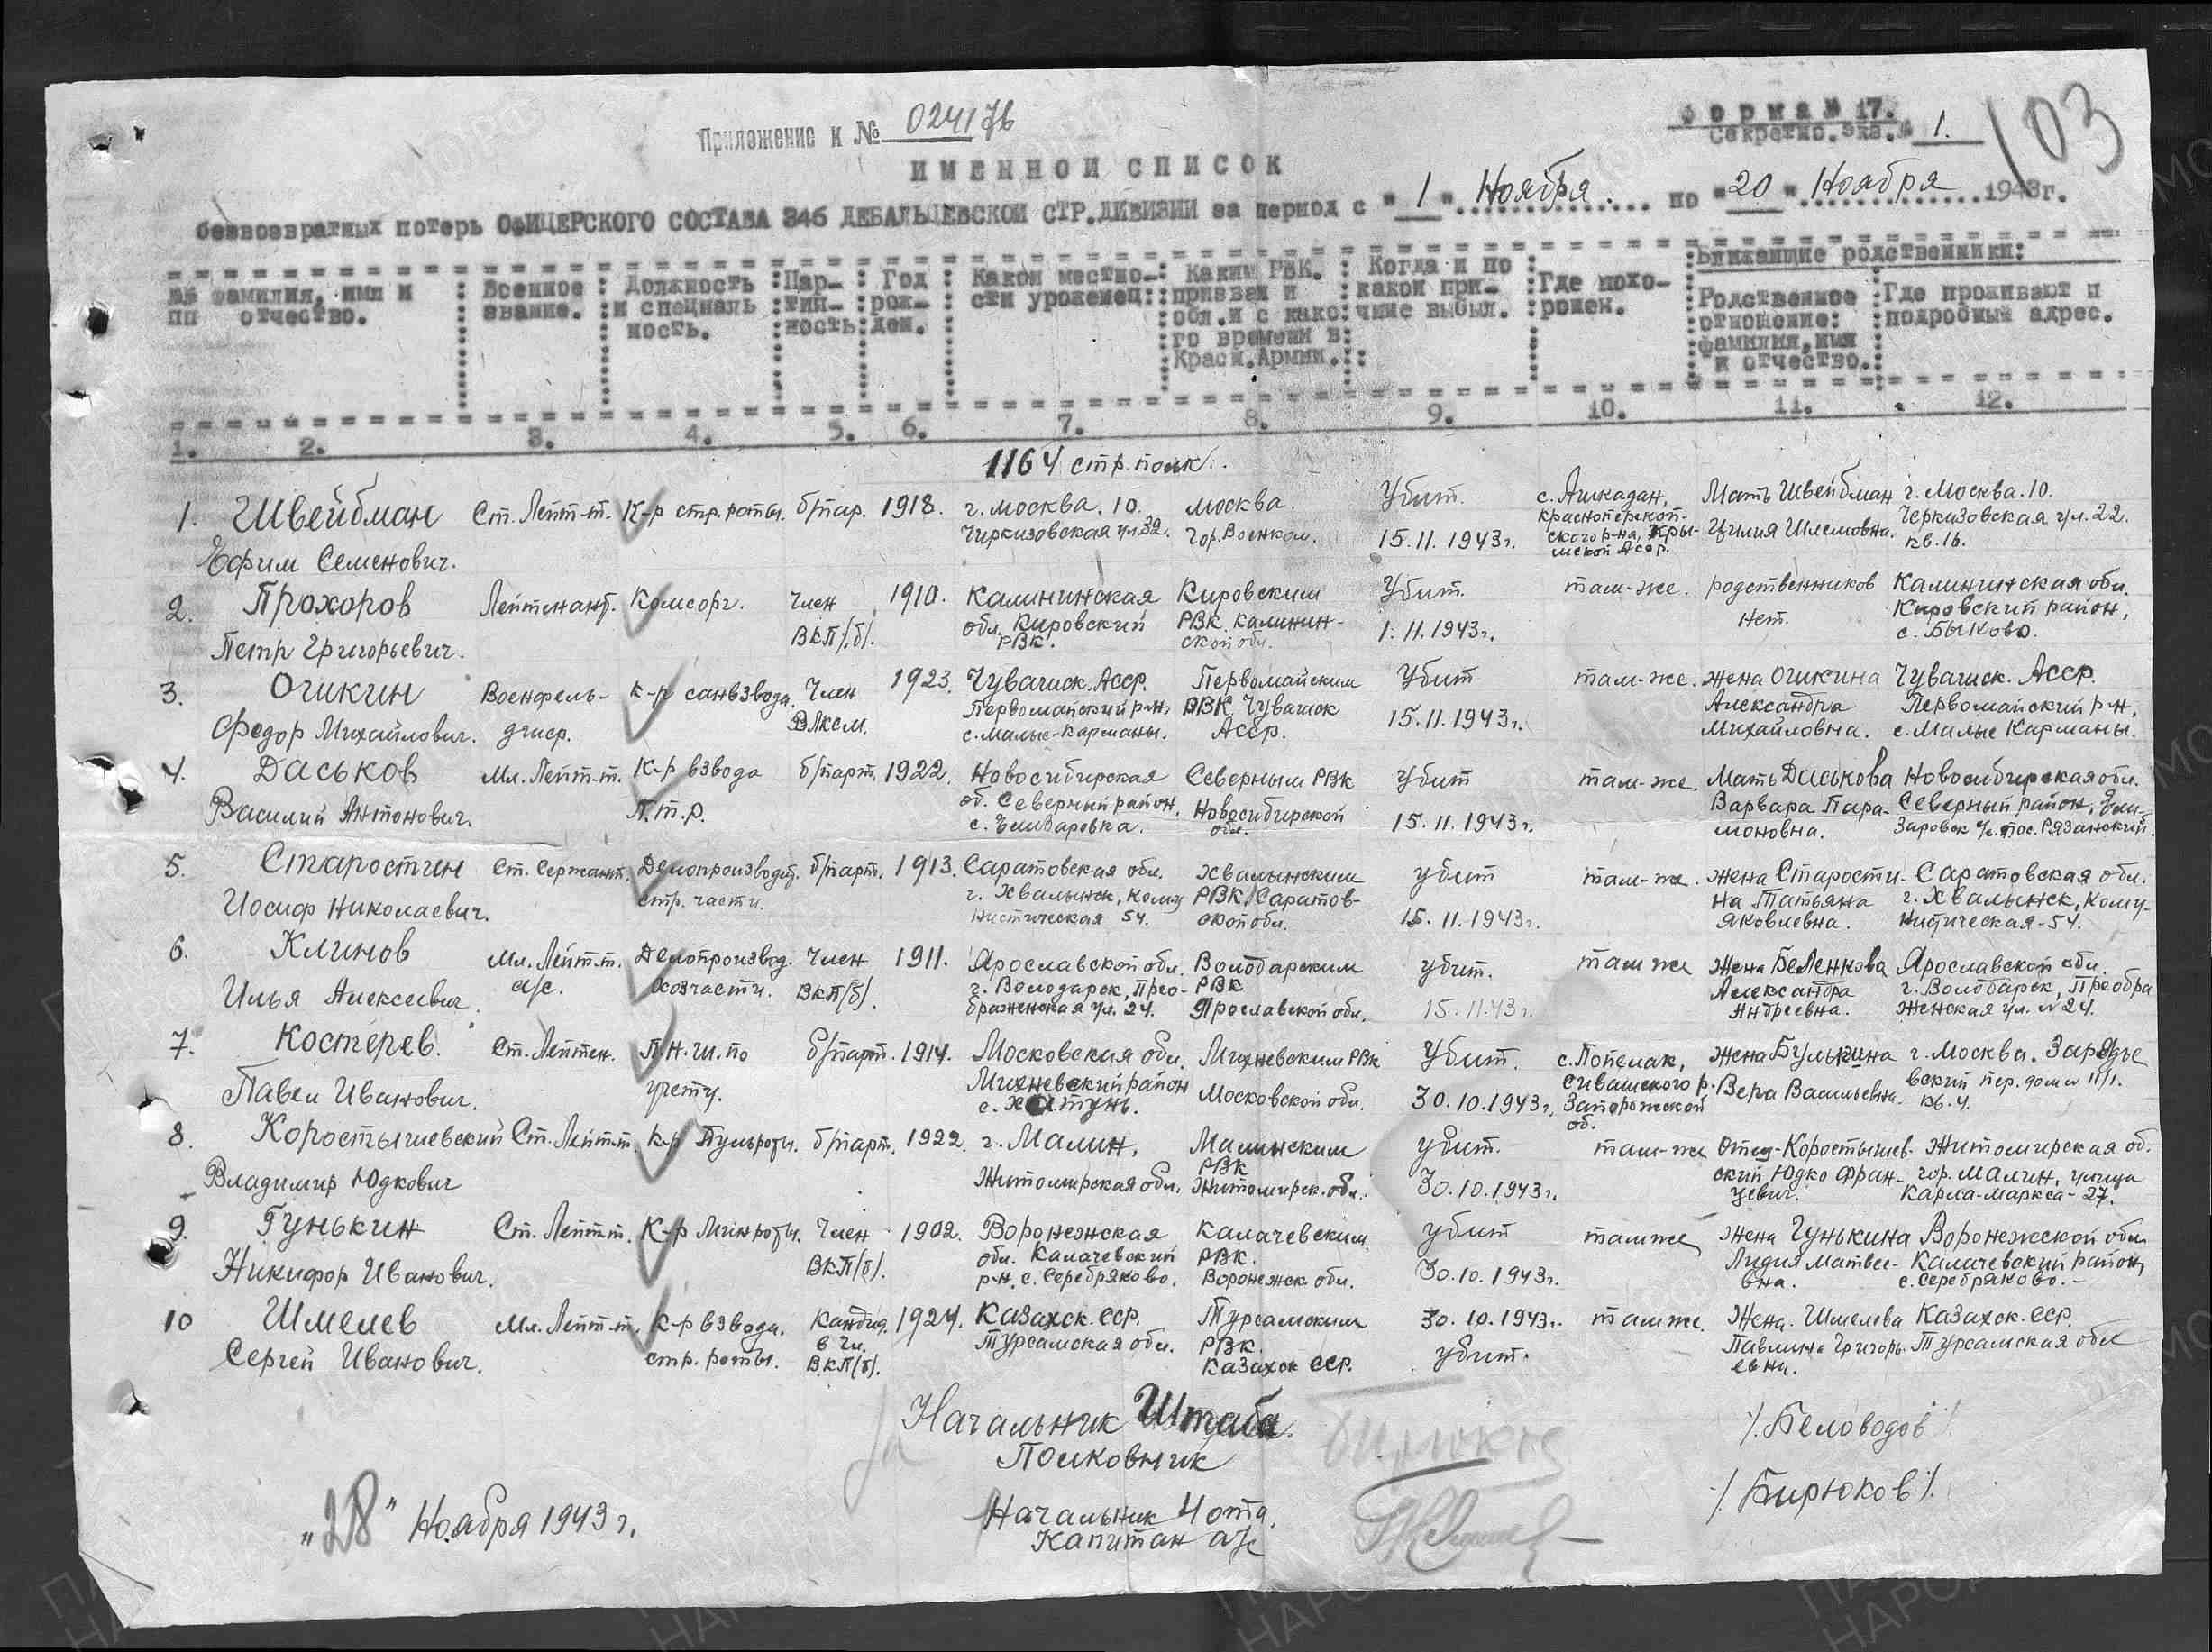 Приложение к № 024176
Форма № 17.
Секретно. Экз. № 1.
103
ИМЕННОЙ СПИСОК
безвозвратных потерь ОФИЦЕРСКОГО СОСТАВА 346 ДЕБАЛЬЦЕВСКОЙ СТР.ДИВИЗИИ за период с "1" Ноября по "20" Ноября 1943г.
№№ пп
фамилия, имя и отчество.
Военное звание.
Должность и специальность.
Партийность
Год рожден.
Какой местности уроженец:
Каким РВК. призван и обл. и с какого времени в Красн.Армии.
Когда и по какой причине выбыл.
Где похоронен.
Ближайшие родственники:
Родственное отношение: фамилия, имя и отчество.
Где проживают и подробный адрес.
1. 2. 3. 4. 5. 6. 7. 8. 9. 10. 11. 12.
1164 стр. полк.
1. Швейбман Ст. Лейт-т. К-р стр. роты. б/пар. 1918. г. Москва. 10. Москва. Убит. с. Ашкадан, Мать Швейбман г. Москва. 10.
Ефим Семенович. Чиркизовская ул. 32. Гор. Военком. 15.11.1943г. Красноперекопского р-на, Крымской Асср. Цилия Шлемовна. Черкизовская ул. 22. кв. 16.
2. Прохоров Лейтенант. Комсорг. Член 1910. Калининская Кировским Убит. там-же. родственников Калининская обл.
Петр Григорьевич. ВКП(б). обл. Кировский РВК. РВК. Калининской обл. 1.11.1943г. нет. Кировский район, с. Быково.
3. Очикин Военфельдшер. К-р санвзвода. Член 1923. Чувашск. Асср. Первомайским Убит там-же. жена Очикина Чувашск. Асср.
Федор Михайлович. ВЛКСМ. Первомайский р-н, с. Малые-Карманы. РВК Чувашск Асср. 15.11.1943г. Александра Михайловна. Первомайский р-н, с. Малые Карманы.
4. Даськов Мл. Лейт-т. К-р взвода б/парт. 1922. Новосибирская Северным РВК Убит там-же. Мать Даськова Новосибирская обл.
Василий Антонович. П.т.р. об. Северный район, Новосибирской обл. 15.11.1943г. Варвара Парамоновна. Северный район,
5. Старостин Ст. Сержант. Делопроизвод. б/парт. 1913. Саратовская обл. Хвалынским убит там-же. жена Старости- Саратовская обл.
Иосиф Николаевич. стр. части. г. Хвалынск, Комунистическая 54. РВК, Саратовской обл. 15.11.1943г. на Татьяна Яковлевна. г. Хвалынск, Комунистическая-54.
6. Клинов Мл. Лейт-т. а/с. Делопроизвод. Член 1911. Ярославской обл. Володарским убит. там же жена Беленкова Ярославской обл.
Илья Алексеевич. хозчасти. ВКП(б). г. Володарск, Преображенская ул. 24. РВК Ярославской обл. 15.11.43г. Александра Андреевна. г. Володарск, Преображенская ул. № 24.
7. Костерев. Ст. Лейтен. П.н.ш. по б/парт. 1914. Московская обл. Михневским РВК Убит. с. Попелак, жена Булыкина г. Москва. Зарядье
Павел Иванович. учету. Михневский район с. Хатунь. Московской обл. 30.10.1943г. Сивашского р. Запорожской об. Вера Васильевна. вский пер. дом № 11/1. кв. 4.
8. Коростышевский Ст. Лейт-т. К-р Пульроты. б/парт. 1922. г. Малин, Малинским убит. там-же отец-Коростышев- Житомирская об.
Владимир Юдкович Житомирская обл. РВК Житомирск. обл. 30.10.1943г. ский Юдко Францевич. гор. Малин, улица Карла-Маркса-27.
9. Гунькин Ст. Лейт-т. К-р Минроты. Член 1902. Воронежская Калачевским убит там же жена Гунькина Воронежской обл.
Никифор Иванович. ВКП(б). обл. Калачевский р-н, с. Серебряково. РВК. Воронежск обл. 30.10.1943г. Лидия Матвеевна. Калачевский район, с. Серебряково.
10 Шмелев Мл. Лейт-т. К-р взвода. Кандид. 1924. Казахск. ССР. Турсамским 30.10.1943г. там же. Жена. Шмелева Казахск. ССР.
Сергей Иванович. стр. роты. в чл. ВКП(б). Турсамская обл. РВК. Казахск ССР. убит. Павлина Григорьевна. Турсамская обл
Начальник Штаба.
Полковник
/Беловодов/
Начальник 4 отд.
Капитан а/с
/Бирюков/.
„28" Ноября 1943г.